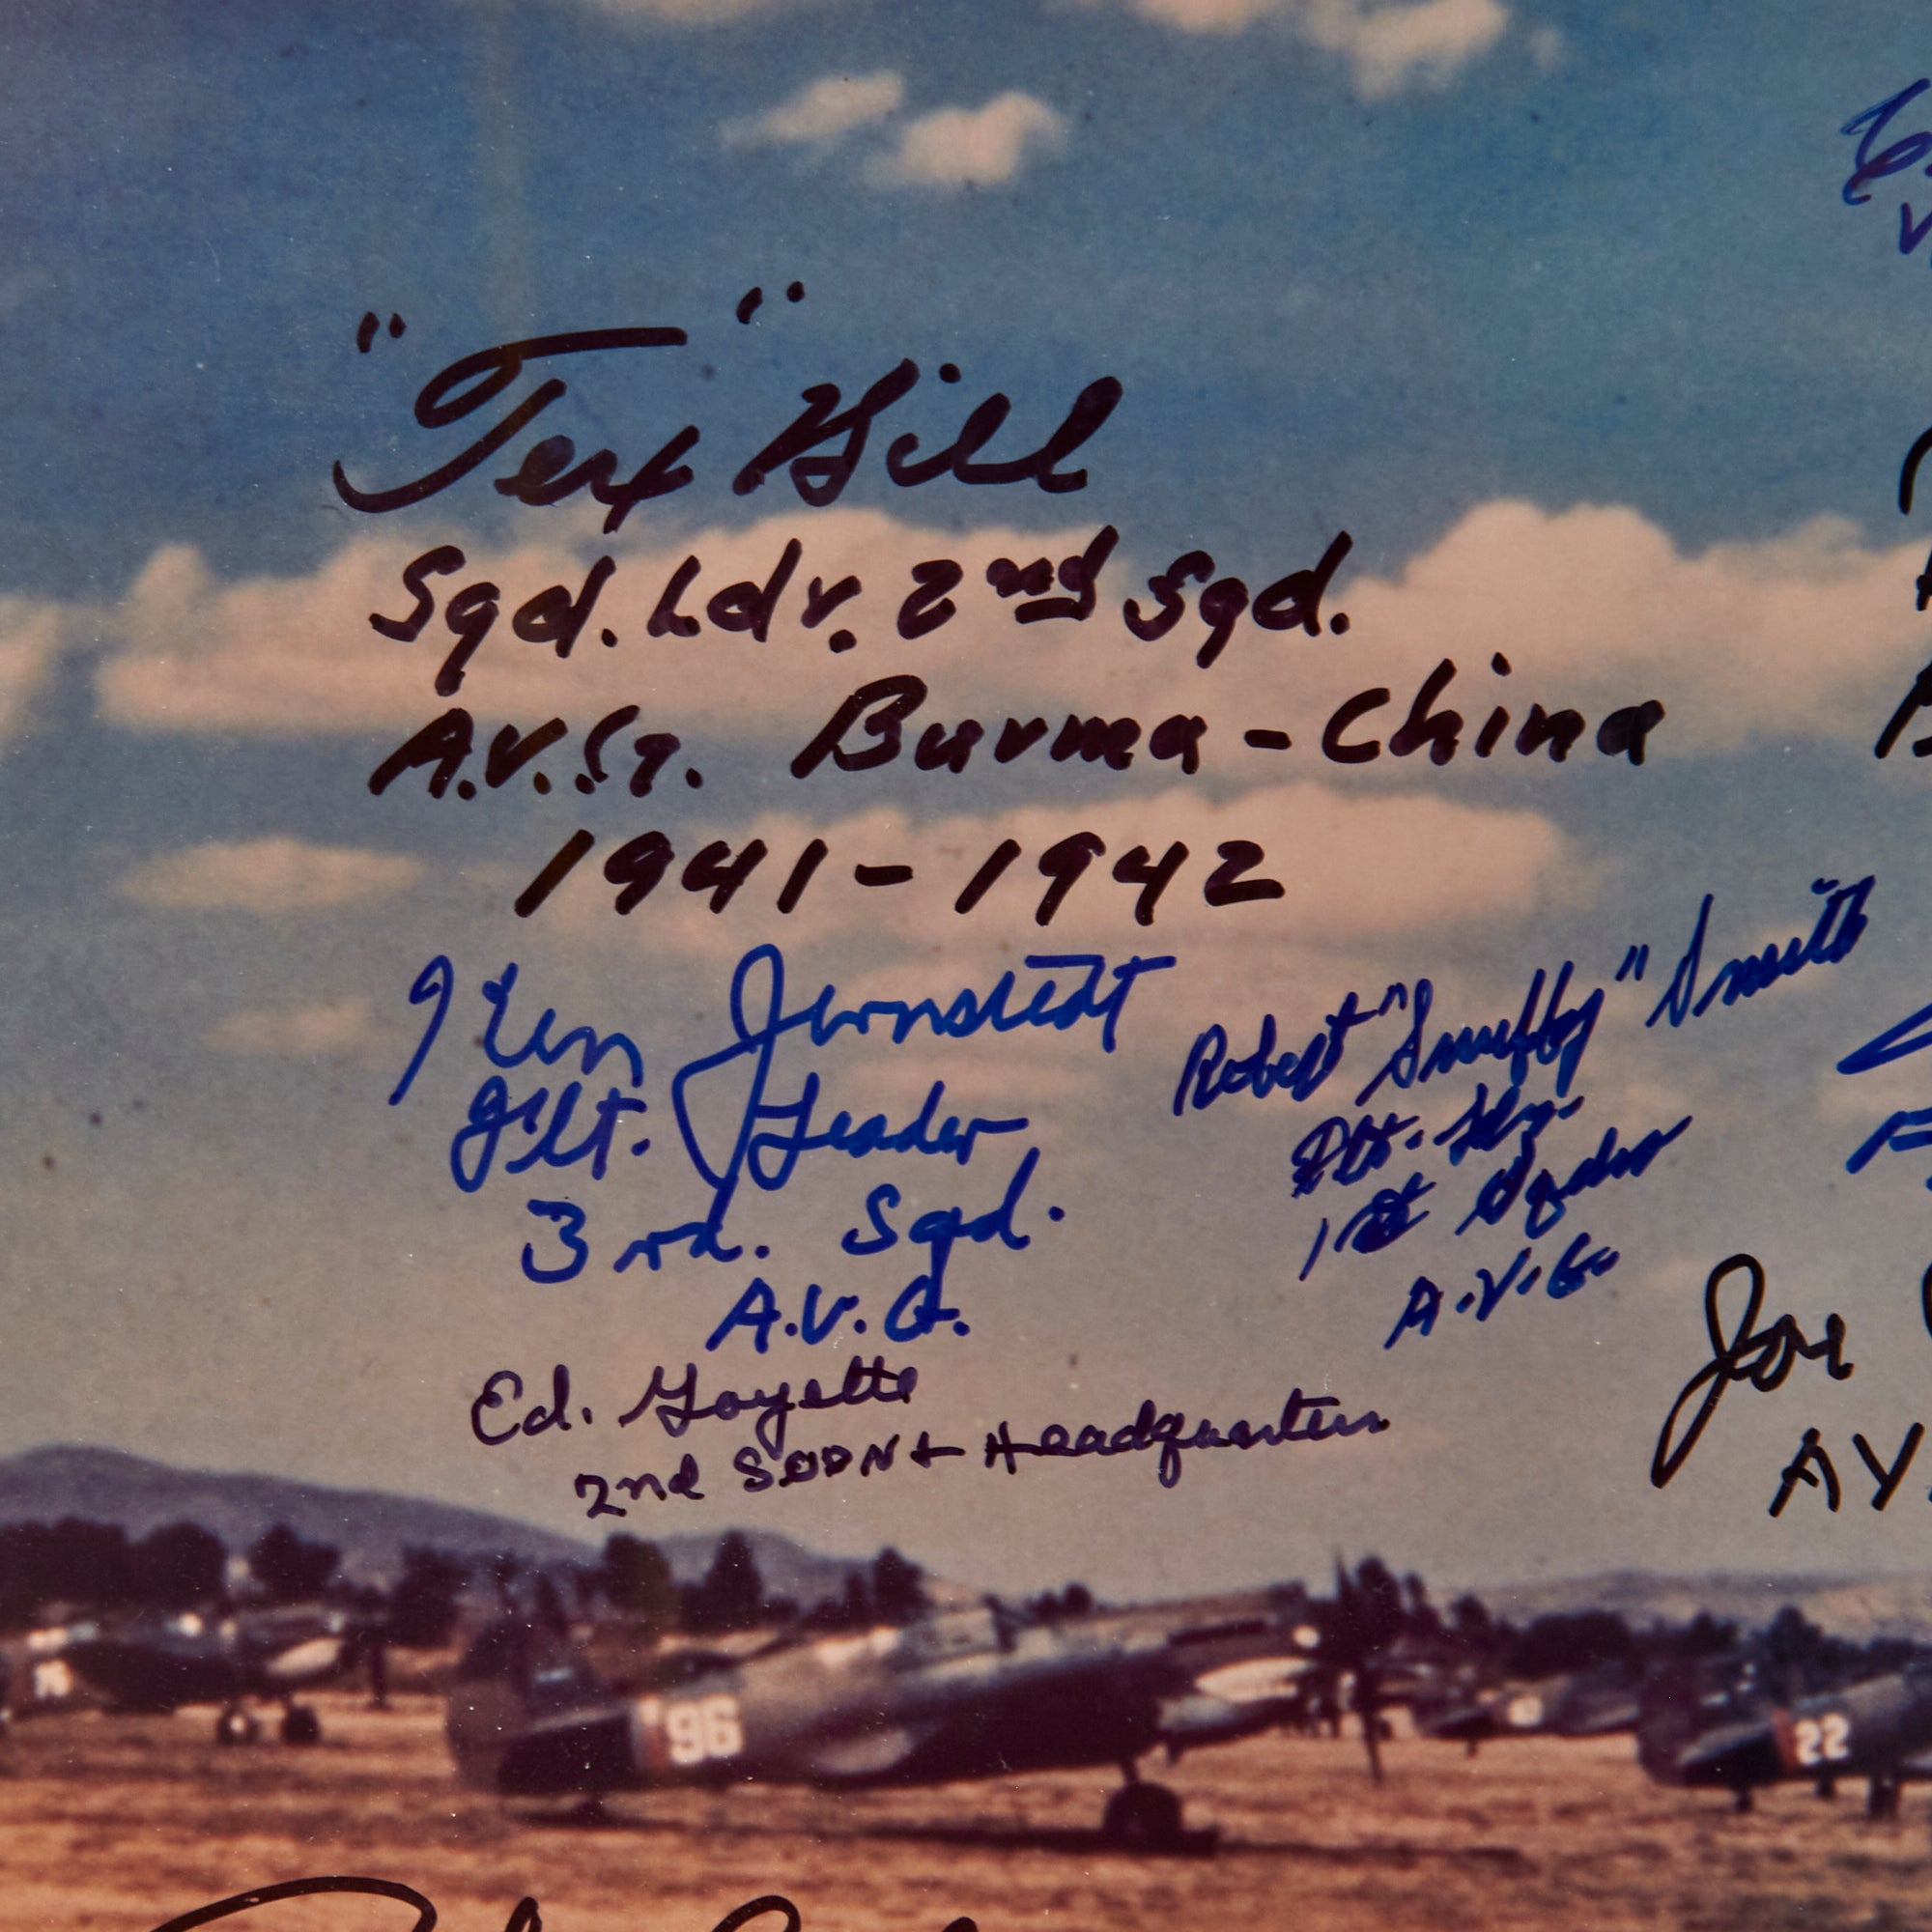 "Tex" Hill
Sqd. Ldr. 2nd Sqd.
A.V.G. Burma - China
1941 - 1942
Ken Jernstedt
Flt. Leader
3rd. Sqd.
A.V.G.
Robert "Snuffy" Smith
1st Sqdn
A.V.G.
Ed. Goyette
2nd SQDN + Headquarters
Joe
AV
96
22